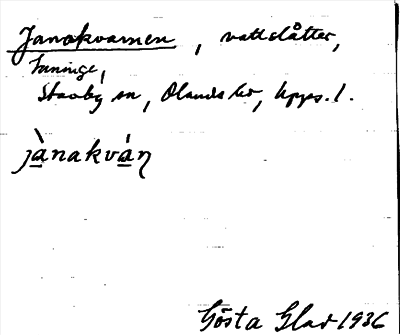 Janakvarnen, vattslåtter,
Tuninge,
Stavby sn, Olands hd, Upps. l.
jànakván
Gösta Glad 1936